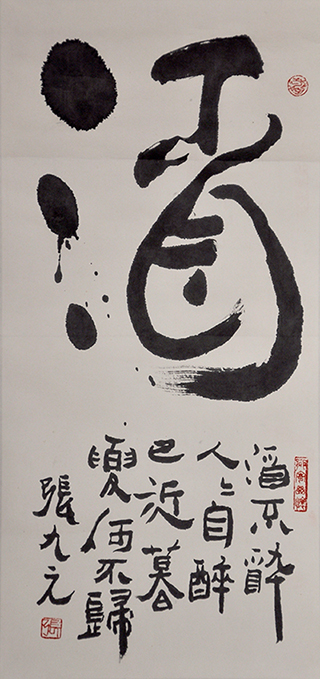 酒
酒不醉
人〻自醉
已近暮
何不歸
張九元